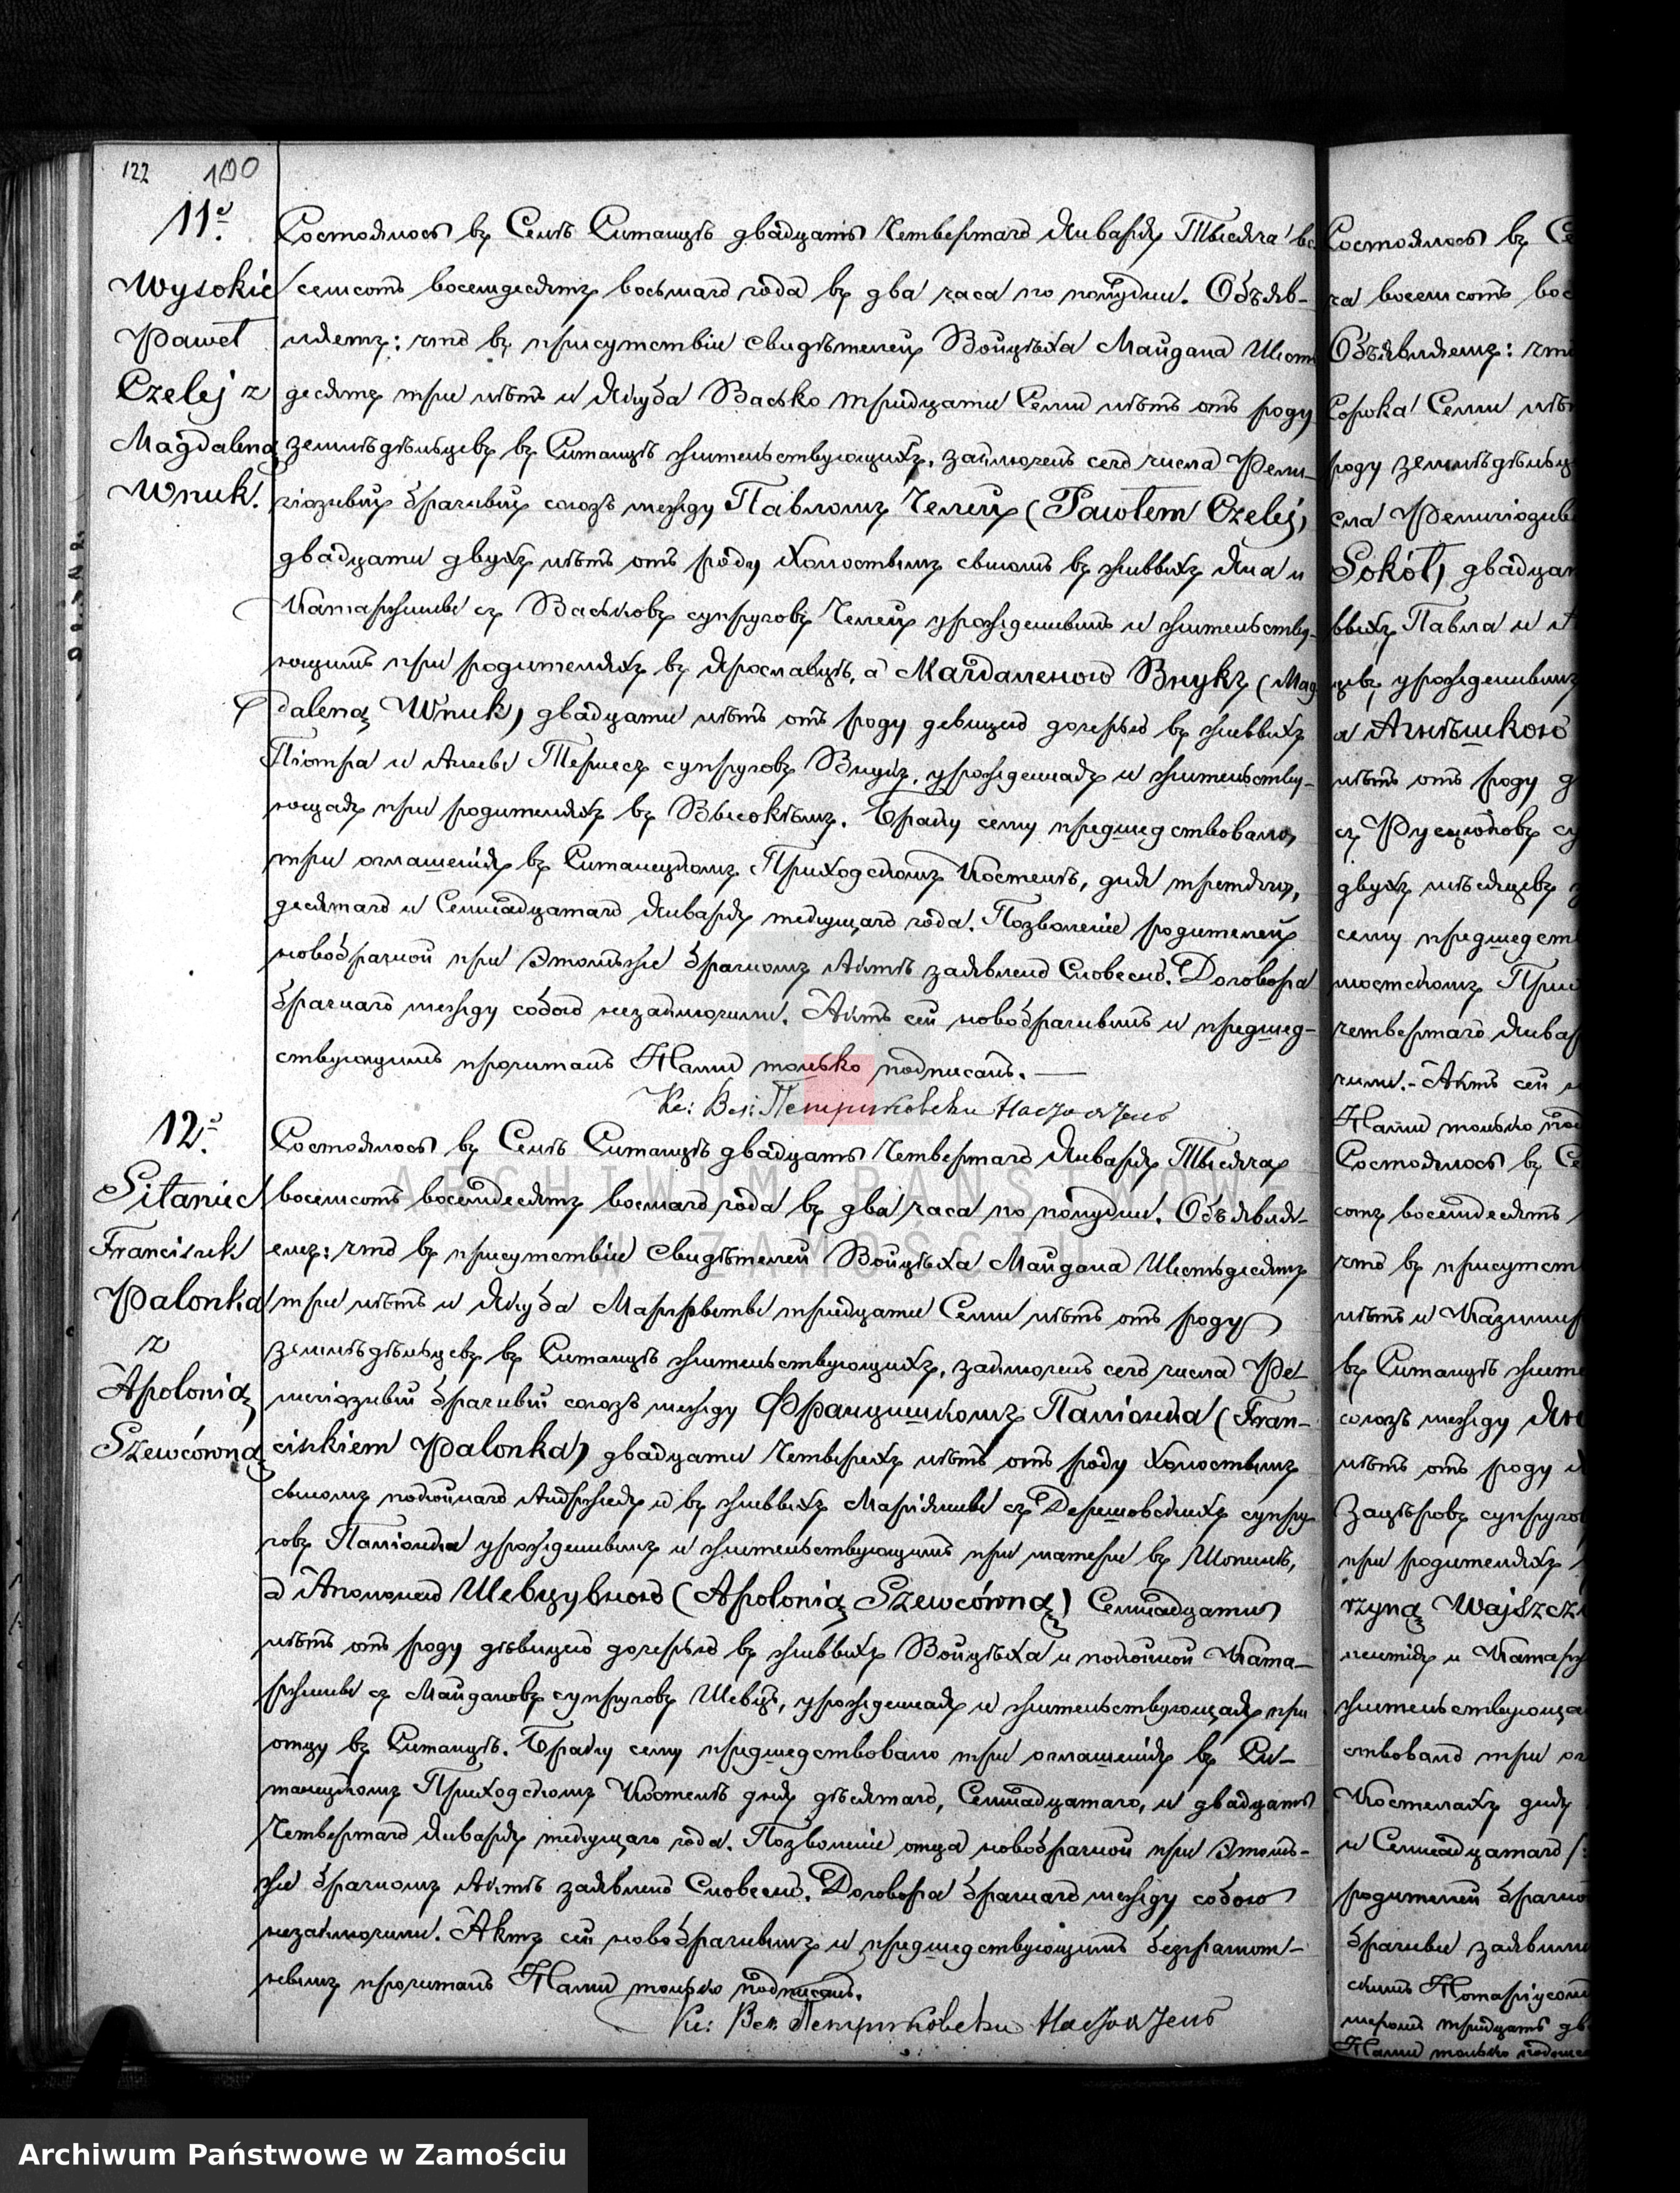 122 100
11.
Wysokie
Paweł
Czelej z
Magdaleną
Wnuk.
Состоялось въ Селѣ Ситанцѣ двадцать Четвертаго Января Тысяча во
семсотъ восемдесятъ восьмаго года въ два часа по полудни. Объяв-
ляемъ: что въ присутствіи свидѣтелей Войцѣха Майдана Шесть
десятъ три лѣтъ и Якуба Васько тридцати Семи лѣтъ отъ роду
земледѣльцевъ въ Ситанцѣ жительствующихъ, заключенъ сего числа Рели-
гіозный брачный союзъ между Павломъ Челей (Pawłem Czelej)
двадцати двухъ лѣтъ отъ роду холостымъ сыномъ въ живыхъ Яна и
Катаржины съ Васьковъ супруговъ Челей урожденнымъ и жительству-
ющимъ при родителяхъ въ Ярославцѣ, а Магдаленою Внукъ (Mag
daleną Wnuk) двадцати лѣтъ отъ роду девицею дочерью въ живыхъ
Піотра и Анны Тернесъ супруговъ Внукъ, урожденная и жительству-
ющая при родителяхъ въ Высокѣмъ. Браку сему предшедствовало
три оглашенія въ Ситанецкомъ Приходскомъ Костелѣ, дня третяго,
десятаго и Семнадцатаго Января текущаго года. Позволеніе родителей
новобрачной при Этомъже брачномъ Актѣ заявлено Словесно. Договора
брачнаго между собою незаключили. Актъ сей новобрачнымъ и предшед-
ствующимъ прочитанъ Нами только подписанъ.
Кс: Вел: Петриковски Настоятель
12.
Sitaniec
Franciszek
Palonka
z
Apolonią
Szewcówną
Состоялось въ Селѣ Ситанцѣ двадцать Четвертаго Января Тысяча
восемсотъ восемдесятъ восмаго года въ два часа по полудни. Объявля-
емъ: что въ присутствіи Свидѣтелей Войцѣха Майдана Шестьдесятъ
три лѣтъ и Якуба тридцати Семи лѣтъ отъ роду
земледѣльцевъ въ Ситанцѣ жительствующихъ, заключенъ сего числа Ре-
лигіозный брачный союзъ между Францишкомъ Паліонка (Fran-
ciszkiem Palonka) двадцати Четырехъ лѣтъ отъ роду холостымъ
сыномъ покойнаго Андржея и въ живыхъ Маріянны съ Дерешовскихъ супру
говъ Паліонка урожденнымъ и жительствующимъ при матери въ
а Аполонею Шевцувною (Apolonią Szewcówną) Семнадцати
лѣтъ отъ роду дѣвицею дочерью въ живыхъ Войцѣха и покойной Ката-
ржины съ Майдановъ супруговъ Шевцъ, урожденная и жительствующая при
отцу въ Ситанцѣ. Браку сему предшедствовало три оглашенія въ Си-
танецкомъ Приходскомъ Костелѣ дня дѣсятаго, Семнадцатаго, и двадцать
Четвертаго Января текущаго года. Позволеніе отца новобрачной при Этомъ-
же брачномъ Актѣ заявлено Словесно. Договора брачнаго между собою
незаключили. Актъ сей новобрачнымъ и предшедствующимъ безграмот-
нымъ прочитанъ Нами только подписанъ.
Кс: Вел: Петриковски Настоятель
Состоялось въ Се
ча восемсотъ вос
Объявляемъ: что
Сорока Семи лѣт
роду земледѣльц
сла Религіозны
Sokół) двадцат
выхъ Павла и А
цевъ урожденнымъ
а Агнѣшкою
лѣтъ отъ роду д
двухъ мѣсяцевъ
сему предшедст
четвертаго Январ
чили.- Актъ сей н
Нами только под
Состоялось въ Се
сотъ восемдесятъ
что въ присутст
лѣтъ и Казимир
въ Ситанцѣ жите
союзъ между
лѣтъ отъ роду
супругов
при родителяхъ
rzyną Wajszcz
жительствующа
ствовало три ог
Костелахъ дня
и Семнадцатаго
родителей брачно
брачные заявили
Нами только
ARCHIWUM PAŃSTWOWE
W ZAMOŚCIU
Archiwum Państwowe w Zamościu